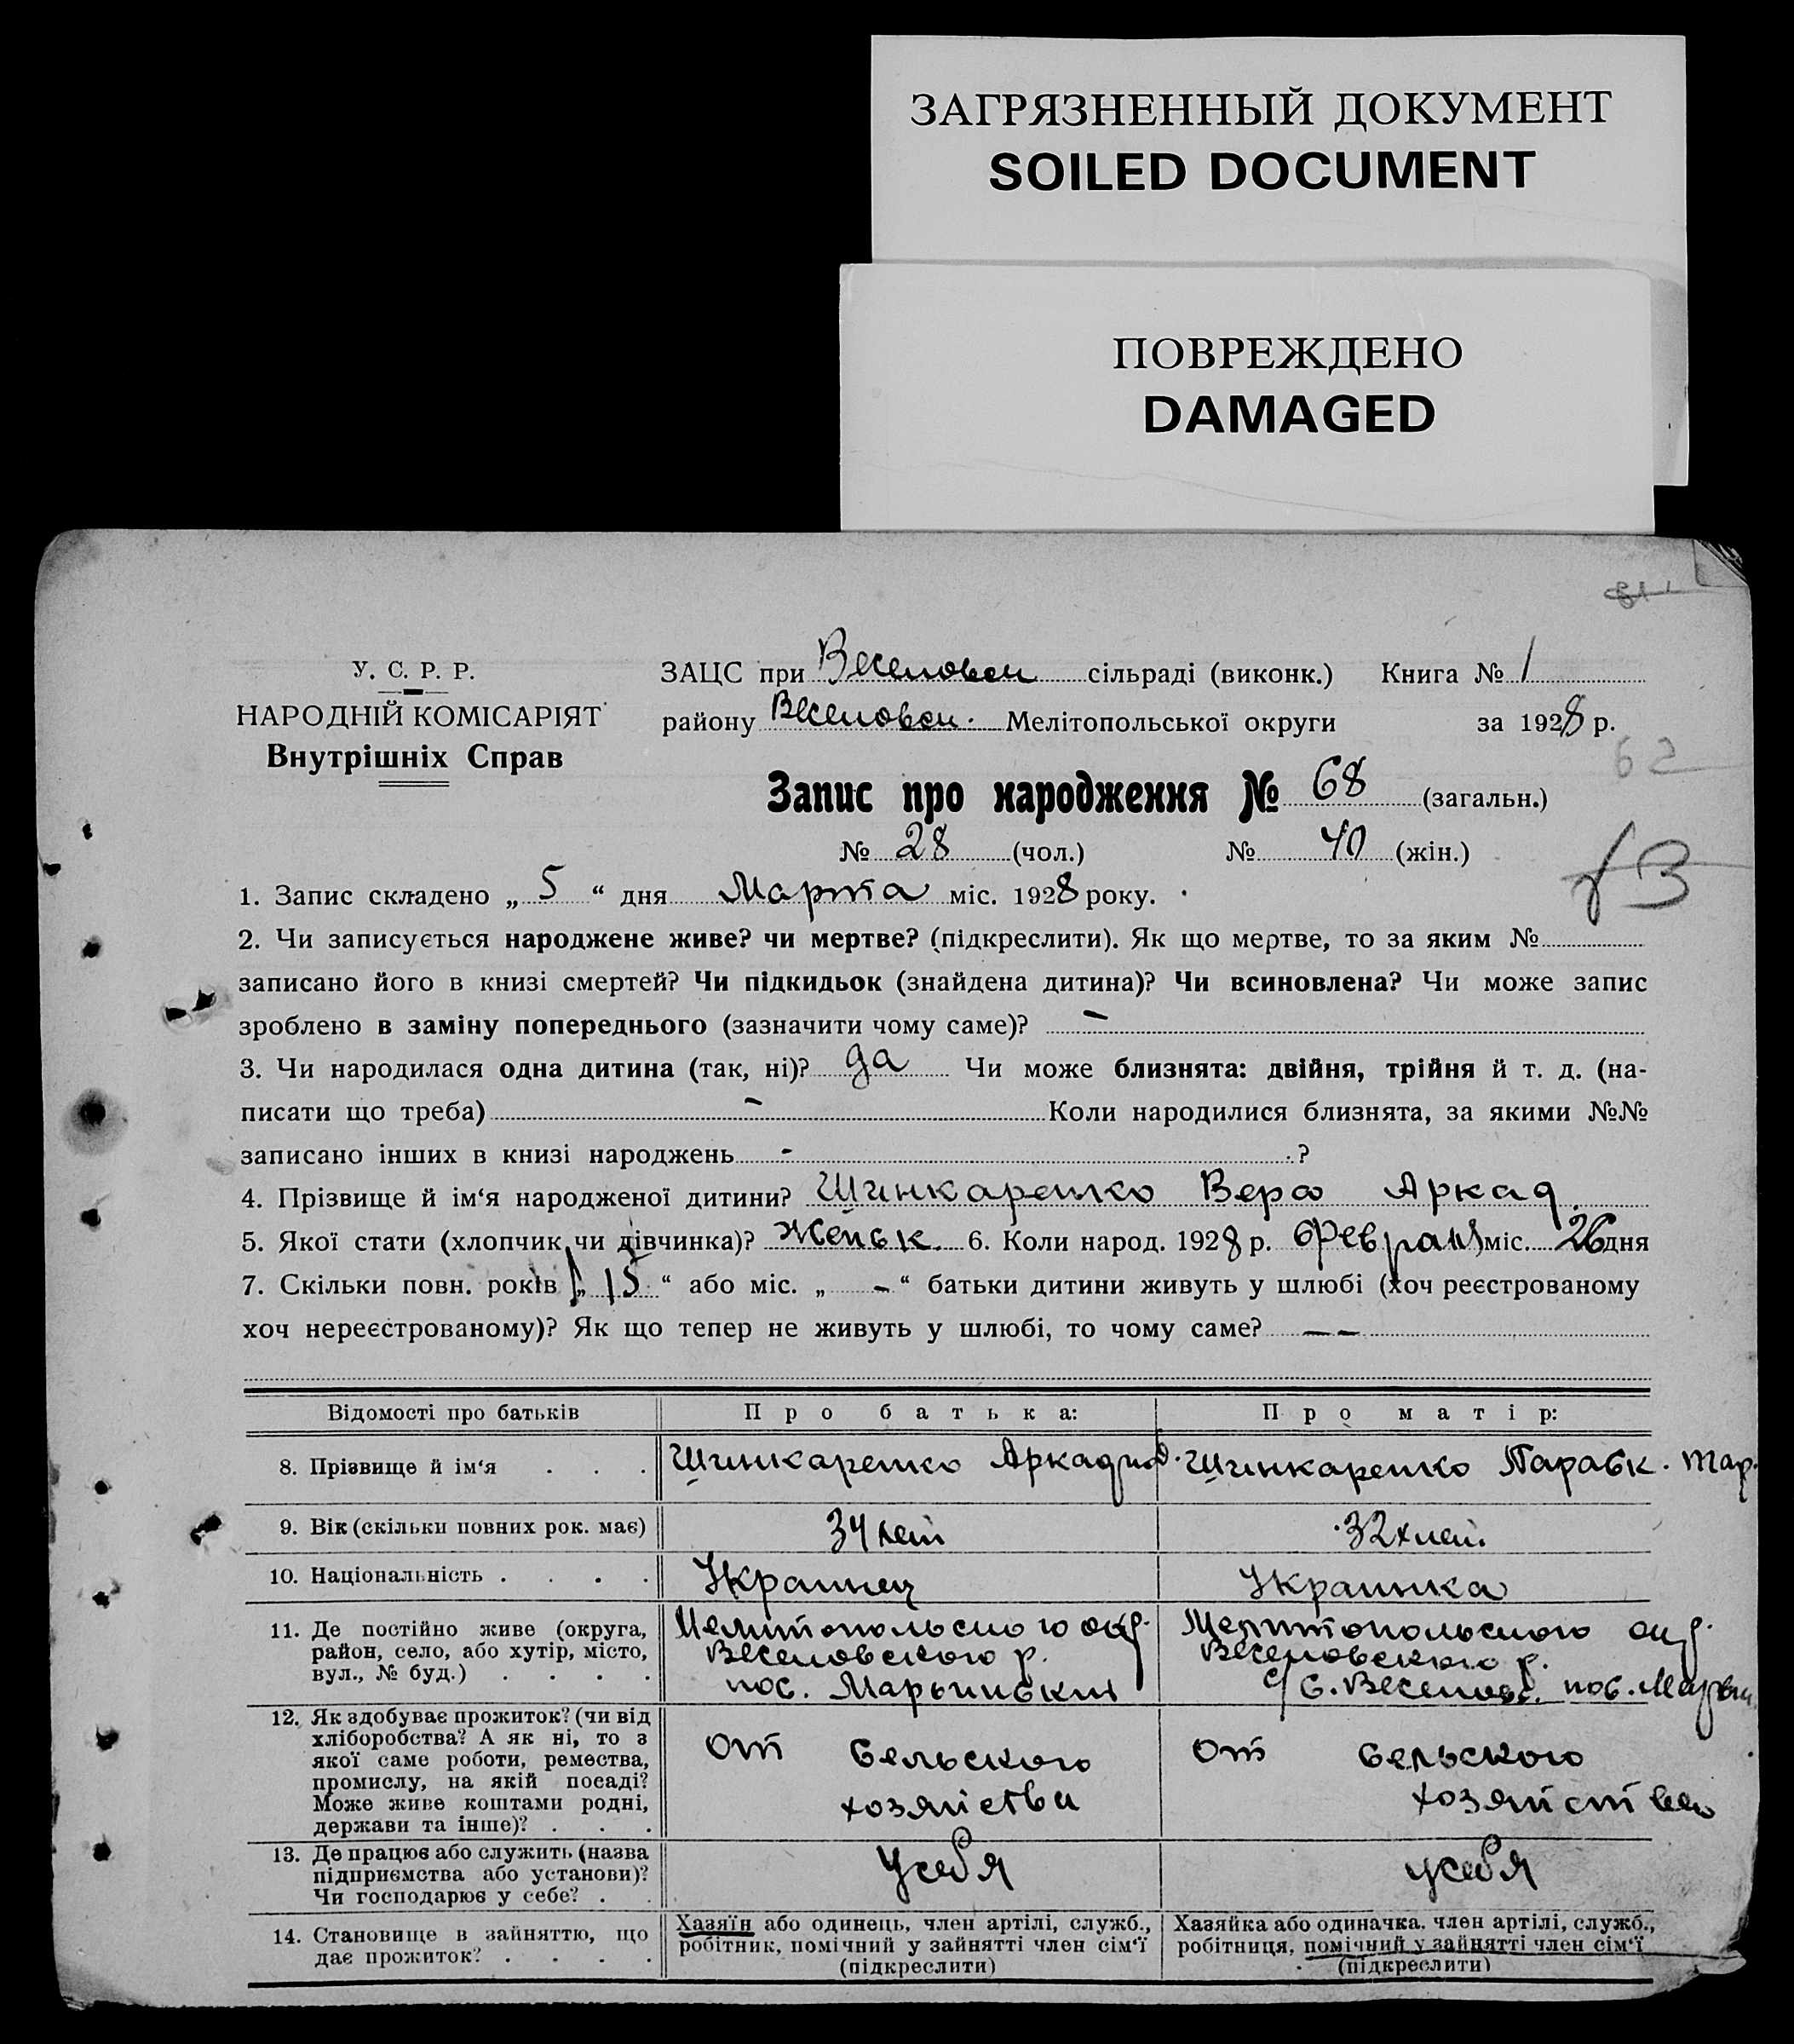 ЗАГРЯЗНЕННЫЙ ДОКУМЕНТ
SOILED DOCUMENT
ПОВРЕЖДЕНО
DAMAGED
У. С. Р. Р.
НАРОДНІЙ КОМІСАРІЯТ
Внутрішніх Справ
ЗАЦС при Веселовск сільраді (виконк.) Книга № 1
району Веселовск. Мелітопольської округи за 1928 р.
62
Запис про народження № 68 (загальн.)
№ 28 (чол.) № 40 (жін.)
1. Запис складено „ 5 “ дня Марта міс. 1928 року.
2. Чи записується народжене живе? чи мертве? (підкреслити). Як що мертве, то за яким №
записано його в книзі смертей? Чи підкидьок (знайдена дитина)? Чи всиновлена? Чи може запис
зроблено в заміну попереднього (зазначити чому саме)? —
3. Чи народилася одна дитина (так, ні)? да Чи може близнята: двійня, трійня й т. д. (на-
писати що треба) — Коли народилися близнята, за якими №№
записано інших в книзі народжень - ?
4. Прізвище й ім‘я народженої дитини? Шинкаренко Вера Аркад.
5. Якої стати (хлопчик чи дівчинка)? Женск. 6. Коли народ. 1928 р. Февраля міс. 26 дня
7. Скільки повн. років „ 15 “ або міс. „ - “ батьки дитини живуть у шлюбі (хоч реєстрованому
хоч нереєстрованому)? Як що тепер не живуть у шлюбі, то чому саме? — —
Відомості про батьків Про батька: Про матір:
8. Прізвище й ім‘я . . . Шинкаренко Аркадий. Шинкаренко Параск. Мар.
9. Вік (скільки повних рок. має) 34 лет 32х лет.
10. Національність . . . . Украинец Украинка
11. Де постійно живе (округа, район, село, або хутір, місто, вул., № буд.) . . . .
Мелитопольского окр.
Веселовского р.
пос. Марьинский
Мелитопольского окр.
Веселовского р.
с/с. Веселовс. пос. Марьин.
12. Як здобуває прожиток? (чи від хліборобства? А як ні, то з якої саме роботи, ремества, промислу, на якій посаді? Може живе коштами родні, держави та інше)? . . .
От сельского
хозяйства
От сельского
хозяйства
13. Де працює або служить (назва підприємства або установи)? Чи господарює у себе? . .
У себя
у себя
14. Становище в зайняттю, що дає прожиток? . . . .
Хазяїн або одинець, член артілі, служб.,
робітник, помічний у зайнятті член сім‘ї
(підкреслити)
Хазяйка або одиначка. член артілі, служб.,
робітниця, помічний у зайнятті член сім‘ї
(підкреслити)